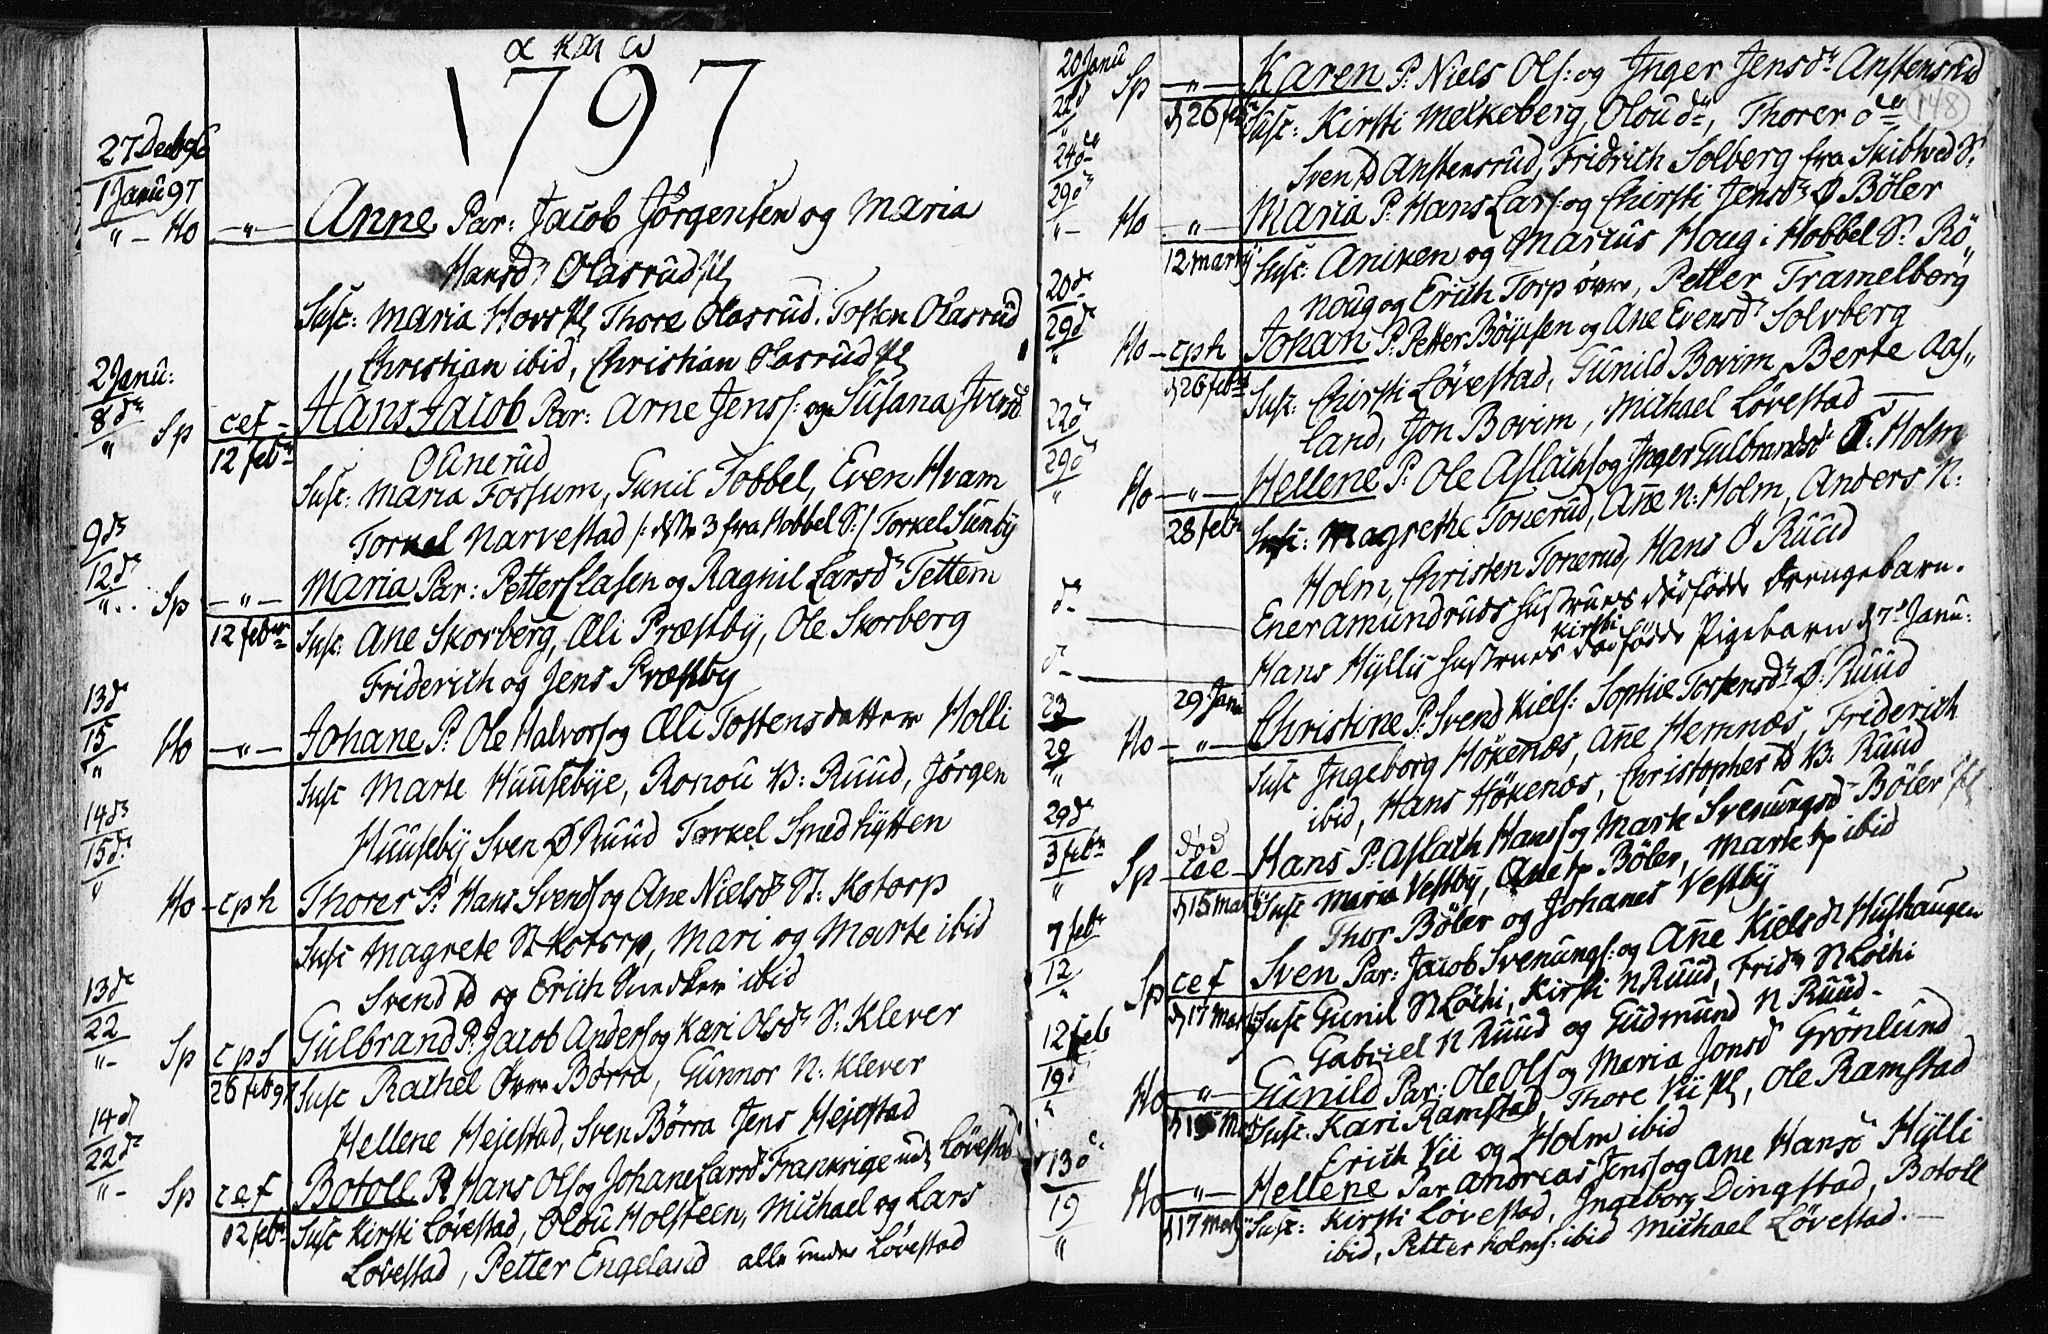 1797
27 Decb 96
1 Janu 97
" - Ho - " - Anne Par: Jacob Jörgensen og Maria
Hansdr Olasrud
Susc: Maria Hors Thore Olasrud. Tosten Olasrud
Christian ibid, Christian Olasrud
2 Janu:
8 d
" Sp cef - Hans Jacob Par: Arne Jenss: og Susana Iversd
12 febr Ounerud
Susc: Maria Fossum, Gunil Tobbel, Even Hvam
Torkel Narvestad /: 3 fra Hobbel S:/ Torkel Sunby
9 d
12 d
" Sp - " - Maria Par: Petter Clasen og Ragnil Larsdr Tettem
12 febr Susc: Ane Skorberg, Æli Præstby, Ole Skorberg
Friderich og Jens Præstby
13 d
15
" Ho - " - Johane P: Ole Halvors og Æli Tostensdatter Holli
Susc Marte Huusebye, Ronou V: Ruud, Jörgen
Huuseby Sven Ø Ruud Torkel Smedhytten
14 d
15 d
" Ho - cph Thorer P: Hans Svends og Ane Nielsd St: Kotorp
Susc Magrete St Kotorp, Mari og Marte ibid
Svend og Erich ibid
13 d
22
" - Sp cps Gulbrand P: Jacob Anders og Kari Olsdr S: Klever
26 feb 97 Susc Rachel övre Börra, Gunnor N: Klever
Hellene Hejestad, Sven Börra Jens Hejestad
14 d
22 d
" - Sp cef Botoll P. Hans Ols og Johane Larsd Frankrige Lövestad
12 feb Susc Kirsti Lövestad, Olou Holsteen, Michael og Lars
Lövestad, Petter Engeland alle under Lövestad
20 Janu
22 d
" Sp - " - Karen P: Niels Ols: og Inger Jensdr Anstensrud
d 26 feb Susc: Kirsti Melkeberg, Olou dn, Thorer
148
Svend Anstensrud, Fridrich Solberg fra Skibtved S:
24 d
29 d
" - Ho - " - Maria P: Hans Lars: og Chirsti Jensdr Ø Böler
12 martij Susc: Aniken og Marcus Houg i Hobbel S: Rö
noug og Erich Torp övre, Petter Tramelborg
20 d
29 d
" Ho - cph Johan P: Petter Böijesen og Ane Evensdr Solvberg
d 26 feb Susc: Chirsti Lövestad, Gunild Bovim, Berte Aas
land, Jon Bovim, Michael Lövestad
22 d
29 d
" Ho - " - Hellene P: Ole Aslachs og Inger Gulbrandsdr Holm
28 febr Susc: Magrethe Tonerud, Ane N: Holm, Anders N:
Holm, Christen Tonerud, Hans Ø Ruud
d - Ener Amundruds Hustrues dödfödde Drengebarn.
Kirsti
d - Hans Hyllis hustrues dödfödde Pigebarn d 7 Janu:
23 29 Janu
29
" Ho - " - Christine P: Svend Kiels: Sophie Tostensdr Ø: Ruud
Susc Ingeborg Hökenæs, Ane Hemnæs, Friderich
ibid, Hans Hökenæs, Christopher V: Ruud
29 d
3 febr död
" Sp - cce - Hans P: Aslach Hans og Marte Svenungsd Böler
d 15 Mar Susc Maria Vestby, Ane Böler, Marte ibid
Thor Böler og Johanes Vestby
7 febr
12
" Sp cef Sven Par: Jacob Svenungs: og Ane Kielsdr Hushaugen
d 17 Mar Susc Gunil St Löchi, Kirsti N Ruud, Fridr St Löchi
Gabriel N Ruud og Gudmund N Ruud -
12 feb
19 d
" Ho - " - Gunild Par: Ole Ols og Maria Jonsd Grönlund
d 15 Mar Susc: Kari Ramstad, Thore Vii, Ole Ramstad
Erich Vii og Holm ibid
13 d
19
" Ho - " - Hellene Par Andreas Jens og Ane Hansd Hylli
d 17 Mar Susc: Kirsti Lövestad, Ingeborg Dingstad, Botoll
ibid, Petter Holms: ibid Michael Lövestad. -